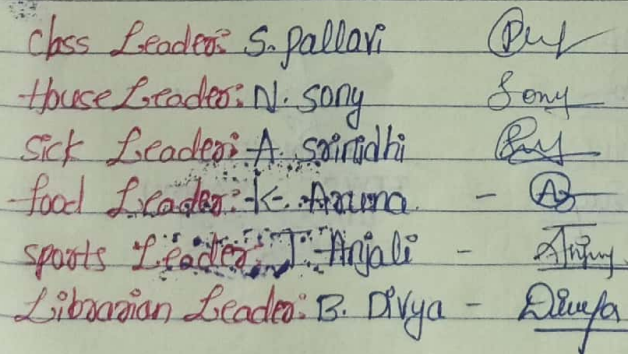 Class Leader: S. Pallavi
House Leader: N. Sony Sony
Sick Leader: A Srinidhi
food Leader: K. Aruna - A
sports Leader: J. Anjali -
Librarian Leader: B. Divya - Divya